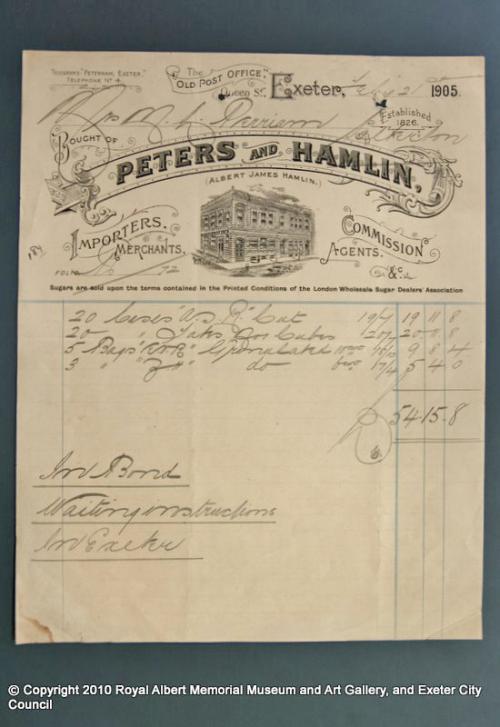 TELEGRAMS "PETERHAM, EXETER."
TELEPHONE No 4
The
"OLD POST OFFICE,"
Queen St. Exeter, 1905.
Established
1826.
BOUGHT OF
PETERS AND HAMLIN,
(ALBERT JAMES HAMLIN.)
IMPORTERS.
MERCHANTS,
COMMISSION
AGENTS.
&c.
FOLIO 72
Sugars are sold upon the terms contained in the Printed Conditions of the London Wholesale Sugar Dealers' Association
20 Cases 19 11 8
20 " Cubes 20 11 8
5 Bags Granulated 9 8 4
3 " do 17/4 5 4 0
54 15 8
In Bond
Waiting instructions
In Exeter
© Copyright 2010 Royal Albert Memorial Museum and Art Gallery, and Exeter City
Council